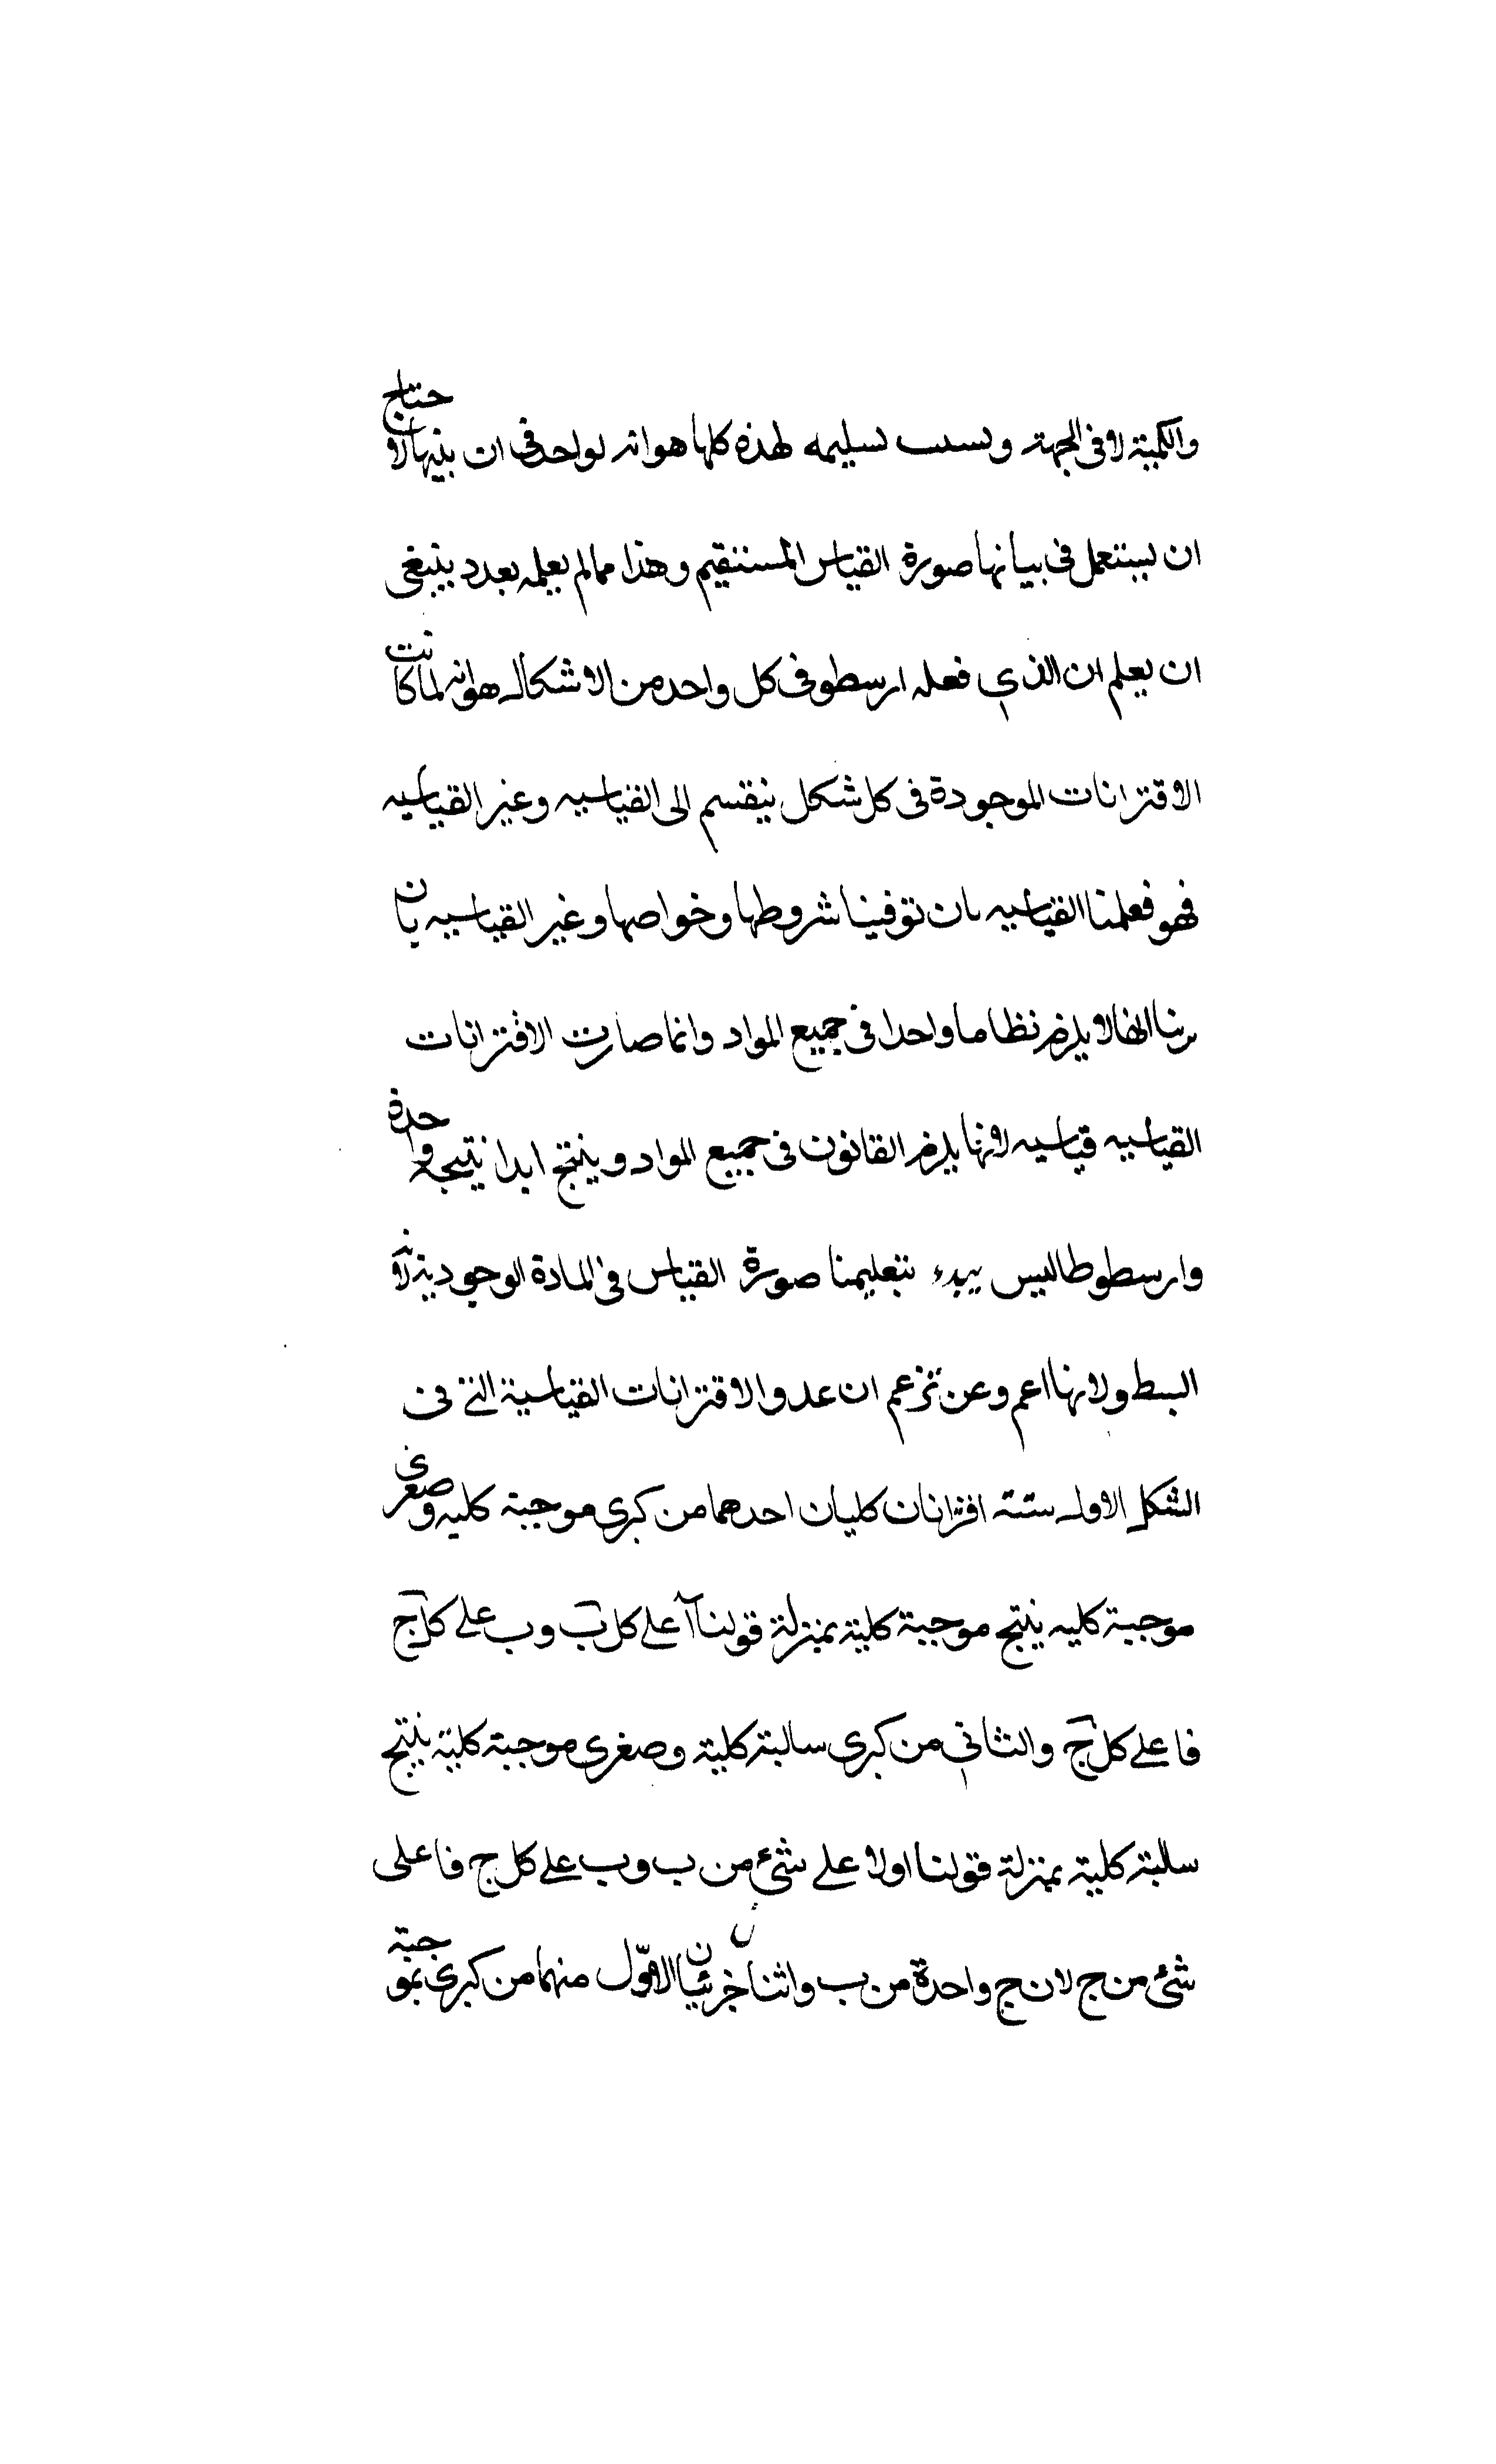 والكمية لا في الجهة وبسبب تسليمه لهذه كلها هو انه لو اخذ في ان يبنيها لاحتاج
ان يستعمل في بيانها صورة القياس المستقيم وهذا مما لم يعلمه بعد د ينبغي
ان يعلم ان الذي فعله ارسطو في كل واحد من الاشكال هو انه لما كانت
الاقترانات الموجودة في كل شكل ينقسم الى القياسيه وغير القياسيه
فهو فعلمنا القياسيه بان توفينا شروطها وخواصها وغير القياسيه بان
يرينا انها لا يلزم نظاما واحدا في جميع المواد وانما صارت الاقترانات
القياسيه قياسيه لانها يلزم القانون في جميع المواد وينتج ابدا نتيجه واحدة
وارسطوطاليس يبدء بتعليمنا صورة القياس في المادة الوجودية لانه
ابسط ولانها اعم وعن تزعم ان عدو الاقترانات القياسية التي في
الشكل الاول ستة اقترانات كليان احدهما من كبرى موجبة كليه وصغرى
موجبة كليه ينتج موجبة كلية بمنزلة قولنا آ على كل ب وب على كل ج
فا على كل ج والثاني من كبرى سالبة كلية وصغرى موجبة كلية ينتج
سالبة كلية بمنزلة قولنا اولا على شئ من ب وب على كل ج فا على
شئ من ج لان ج واحدة من ب واثنان جزئيان الاوّل منهما من كبرى بموجبة